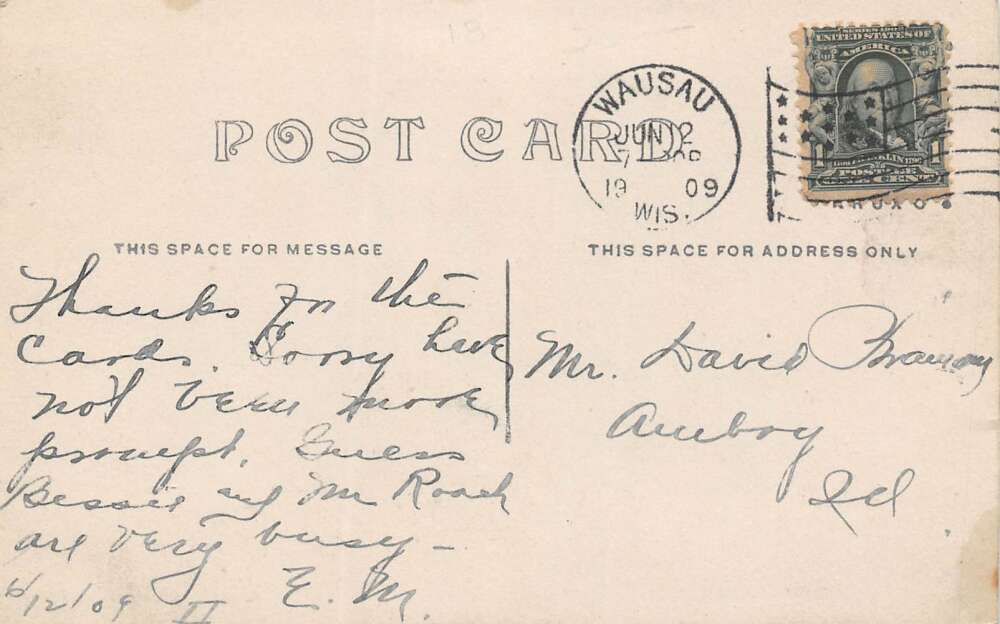 POST CARD
WAUSAU
JUN 12
19 09
WIS.
SERIES 1902
UNITED STATES OF
AMERICA
1 FRANKLIN 1
POSTAGE
ONE CENT
THIS SPACE FOR MESSAGE
Thanks for the
Cards. Sorry have
not been more
prompt. Guess
Bessie and Mr Roach
are very busy -
E. M.
6/12/09 II
THIS SPACE FOR ADDRESS ONLY
Mr. David
Amboy